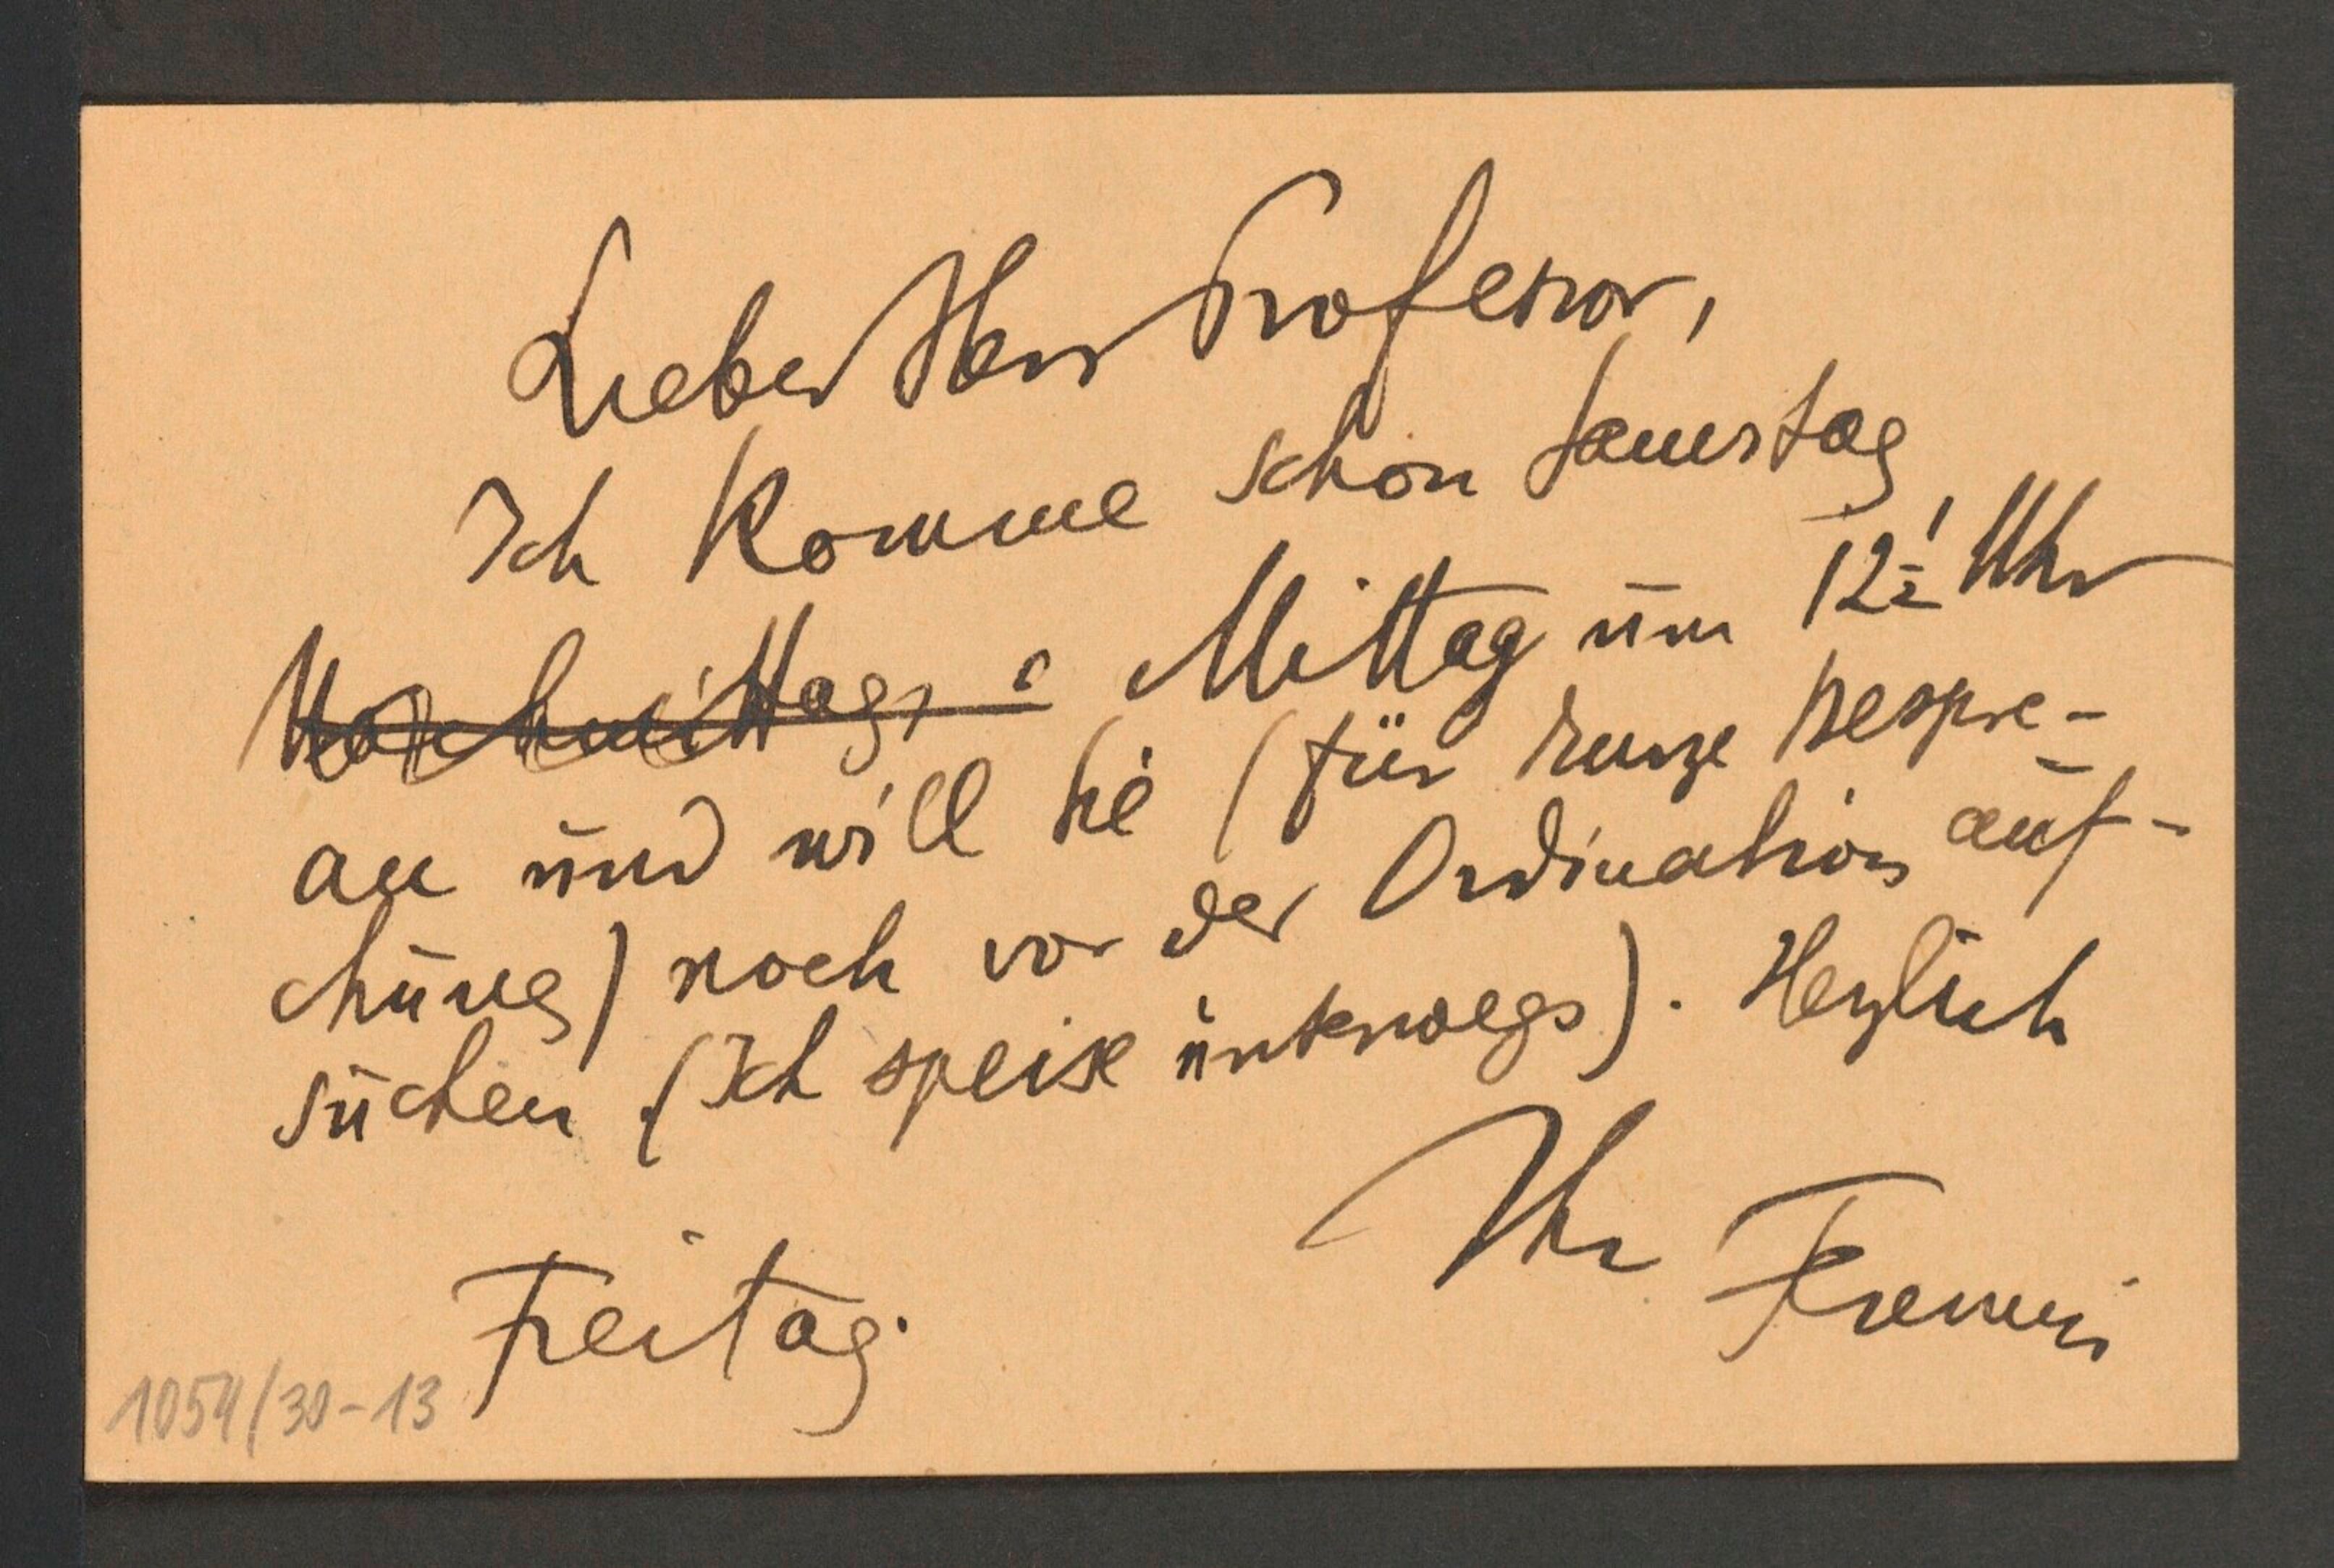 Lieber Herr Professor,
Ich komme schon Samstag
Vormittags : Mittag um 12½ Uhr
an und will Sie (für kurze Bespre-
chung) noch vor der Ordination auf-
suchen (Ich speise unterwegs). Herzlich
Ihr
Freitag.
1054/30-13